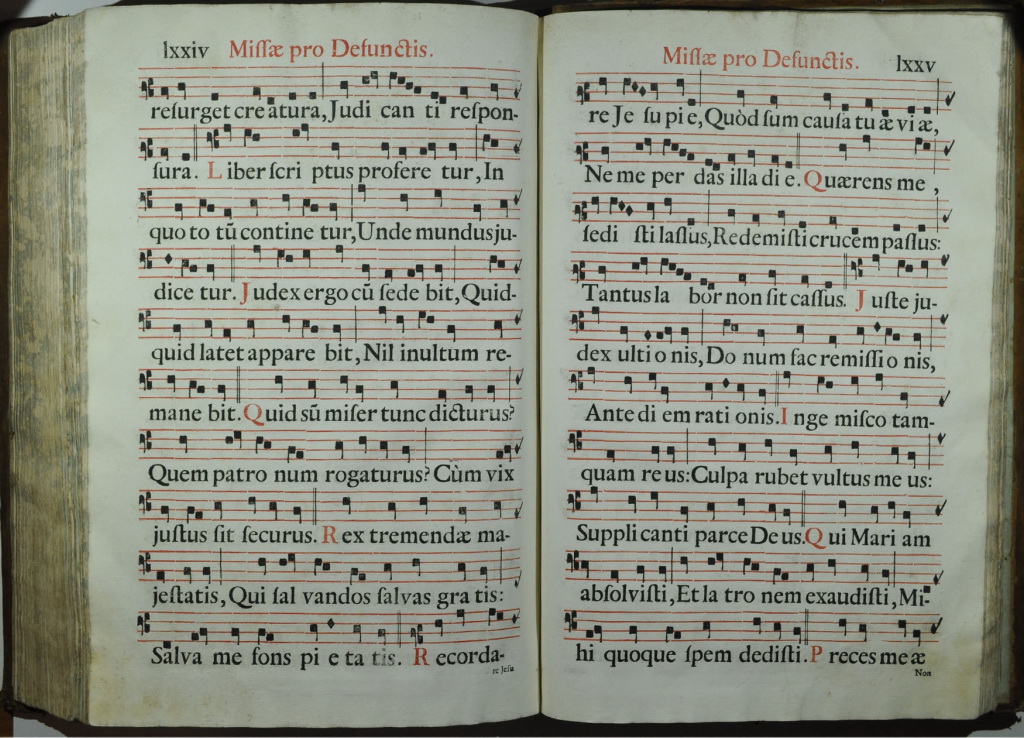 lxxiv Miſſæ pro Defunctis.
reſurget creatura, Judi can ti reſpon-
ſura. Liber ſcri ptus profere tur, In
quo to tũ contine tur, Unde mundus ju-
dice tur. Judex ergo cũ ſede bit, Quid-
quid latet appare bit, Nil inultum re-
mane bit. Quid sũ miſer tunc dicturus?
Quem patro num rogaturus? Cùm vix
juſtus ſit ſecurus. Rex tremendæ ma-
jeſtatis, Qui ſal vandos ſalvas gra tis:
Salva me fons pi e ta tis. Recorda-
re Jeſu
Miſſæ pro Defunctis. lxxv
re Je ſu pi e, Quòd ſum cauſa tu æ vi æ,
Ne me per das illa di e. Quærens me,
ſedi ſti laſſus, Redemiſti crucem paſſus:
Tantus la bor non ſit caſſus. Juſte ju-
dex ulti o nis, Do num fac remiſſi o nis,
Ante di em rati onis. Inge miſco tam-
quam re us: Culpa rubet vultus me us:
Suppli canti parce De us. Qui Mari am
abſolviſti, Et la tro nem exaudiſti, Mi-
hi quoque ſpem dediſti. Preces me æ
Non